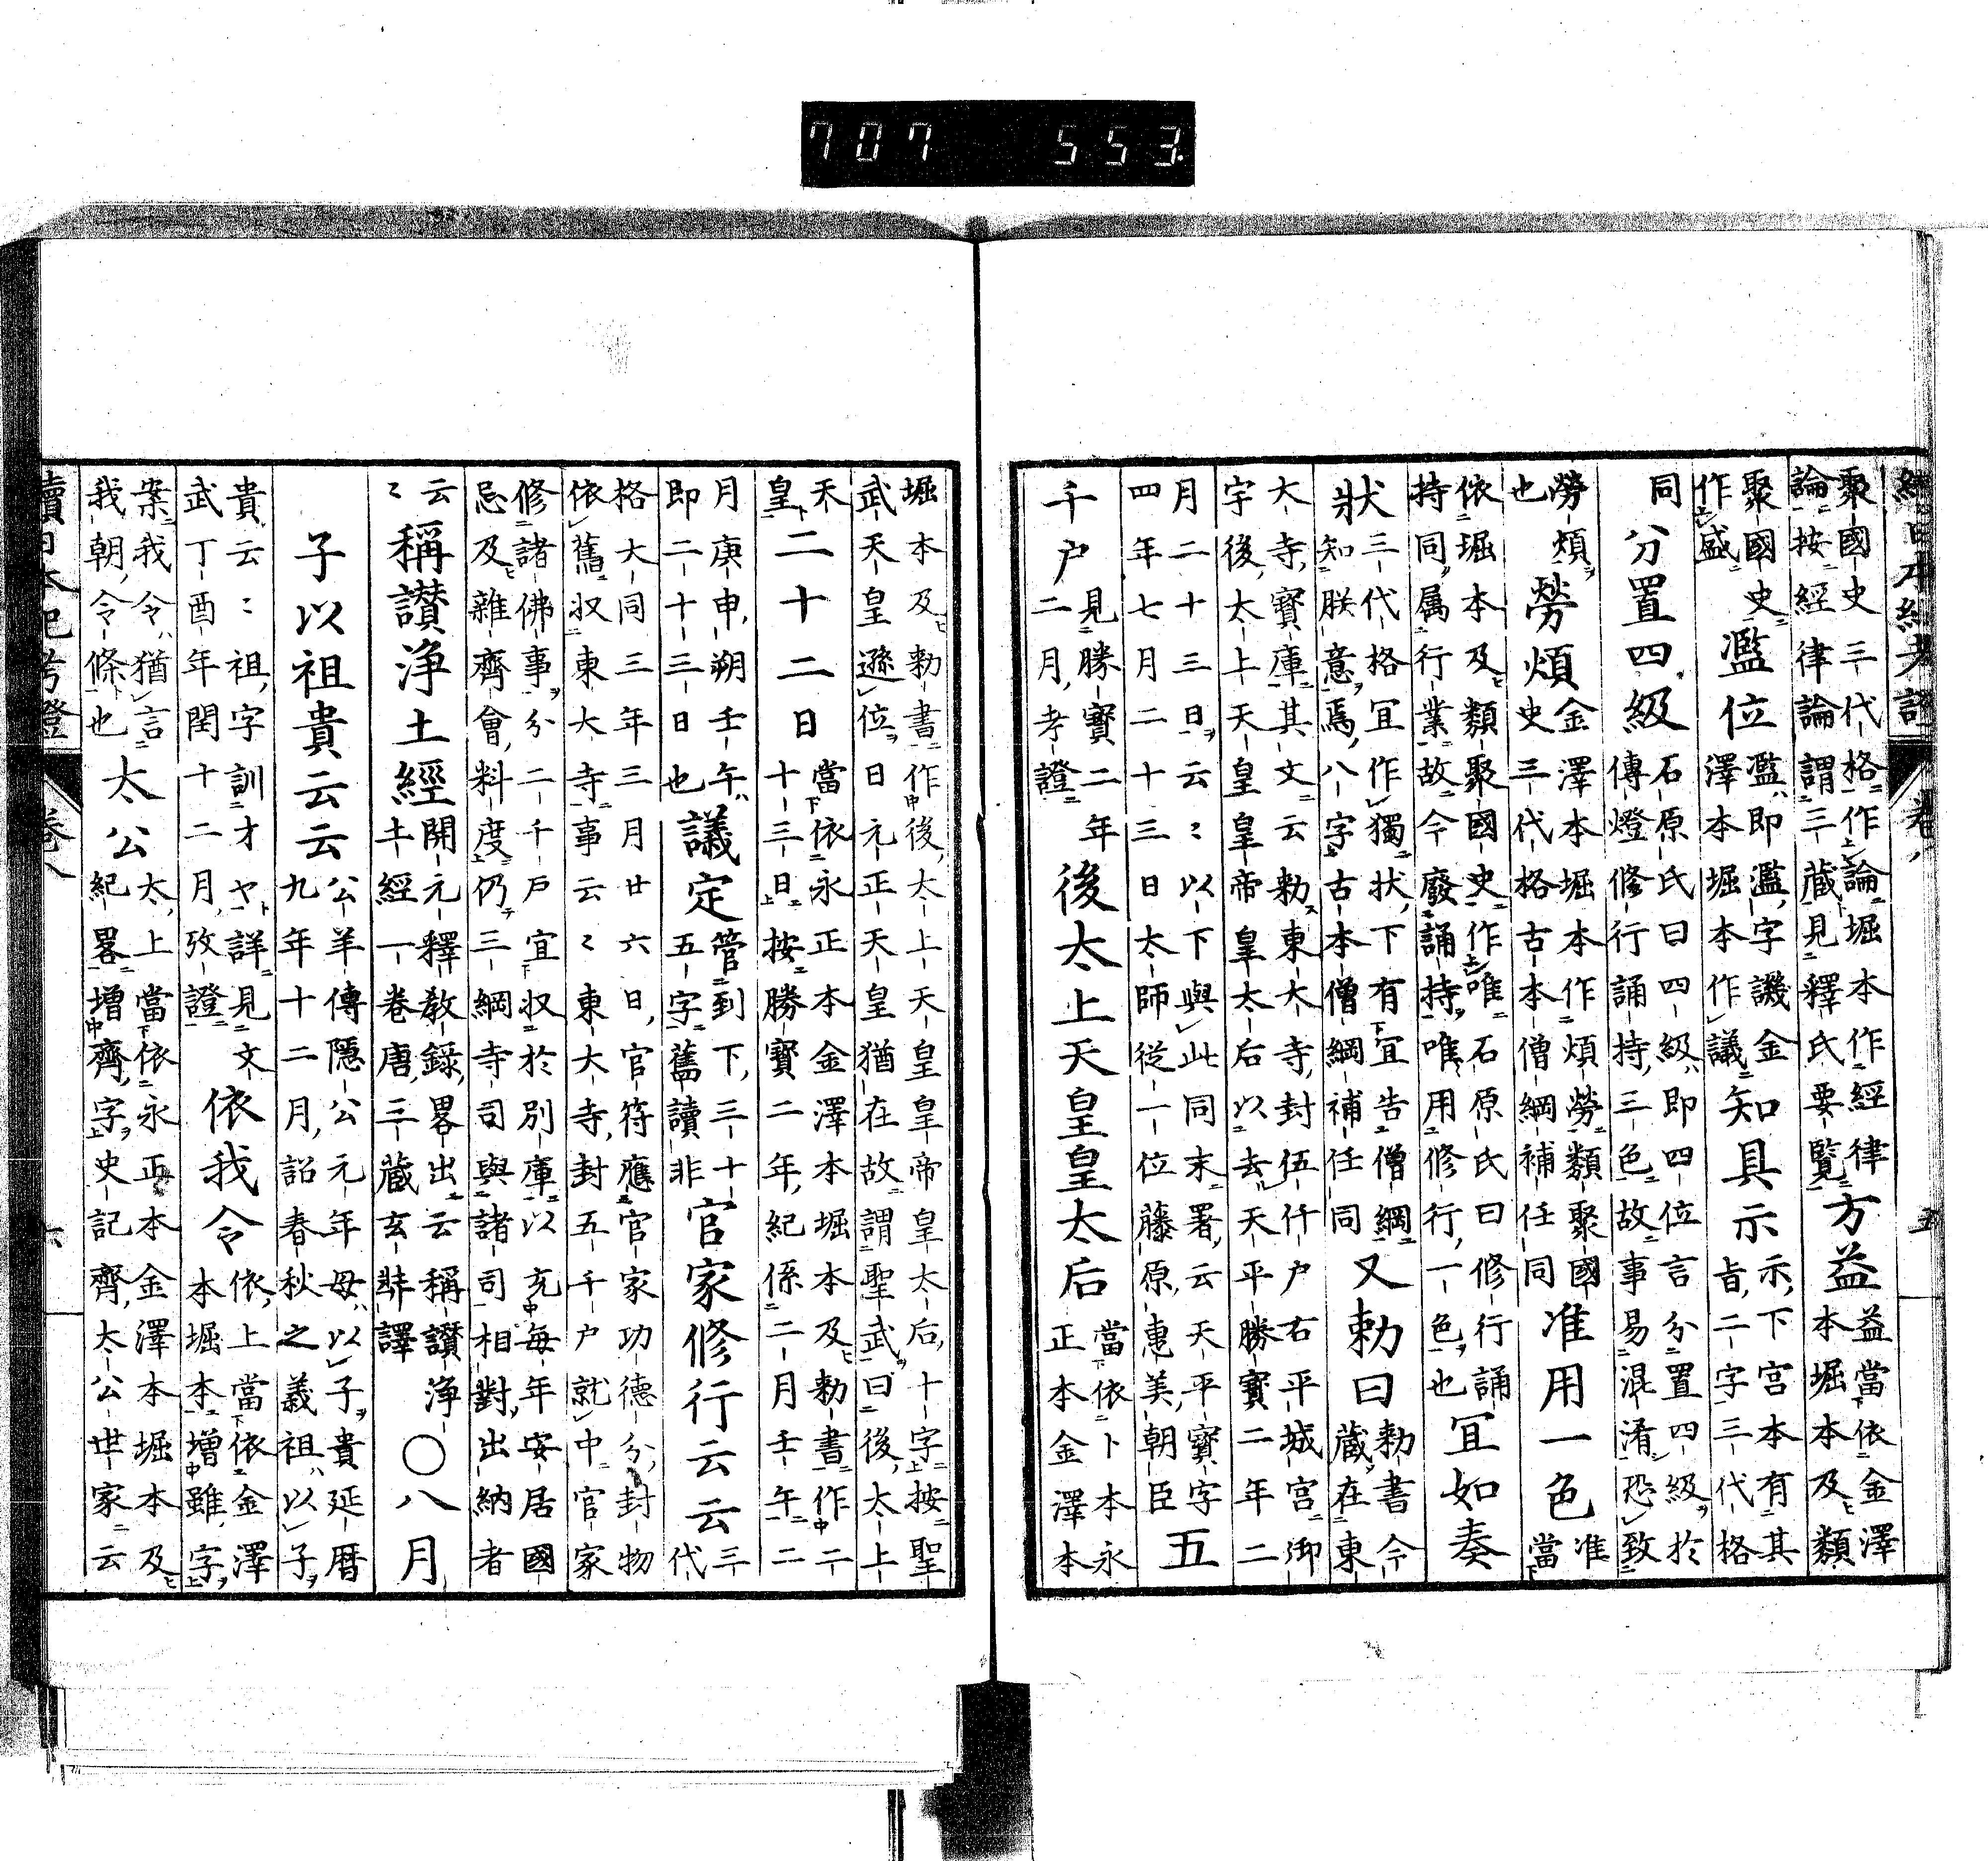 707 553.
續日本紀考證 卷八 五
聚國史三代格作論堀本作經律
論按經律論謂三藏見釋氏要覽
方益
益當依金澤
本堀本及類
聚國史
作盛
濫位
濫即濫字譏金
澤本堀本作議
知具示
示下宮本有其
旨二字三代格
同
分置四級
石原氏曰四級即四位言分置四級於
傳燈修行誦持三色故事易混淆恐致
勞煩
也
勞煩
金澤本堀本作煩勞類聚國
史三代格古本僧綱補任同
准用一色
准
當
依堀本及類聚國史作唯石原氏曰修行誦
持同属行業故今廢誦持唯用修行一色也
宜如奏
狀
三代格宜作獨狀下有宜告僧綱
知朕意焉八字古本僧綱補任同
又勅曰
勅書今
藏在東
大寺寶庫其文云勅東大寺封伍仟户右平城宮御
宇後太上天皇皇帝皇太后以去天平勝寶二年二
月二十三日云〻以下與此同末署云天平寶字
四年七月二十三日太師從一位藤原惠美朝臣
五
千户
見勝寶二年
二月考證
後太上天皇皇太后
當依卜本永
正本金澤本
堀本及勅書作後太上天皇皇帝皇太后十字按聖
武天皇遜位日元正天皇猶在故謂聖武曰後太上
天
皇
二十二日
當依永正本金澤本堀本及勅書作二
十三日按勝寶二年紀係二月壬午二
月庚申朔壬午
即二十三日也
議定
管到下三十
五字舊讀非
官家修行云云
三
代
格大同三年三月廿六日官符應官家功德分封物
依舊収東大寺事云〻東大寺封五千户就中官家
修諸佛事分二千戸宜収於別庫以充每年安居國
忌及雜齊會料度仍三綱寺司與諸司相對出納者
云
〻
稱讃浄土經
開元釋教録畧出云稱讃浄
土經一卷唐三藏玄奘譯
〇八月
子以祖貴云云
公羊傳隱公元年母以子貴延暦
九年十二月詔春秋之義祖以子
貴云〻祖字訓才ヤ詳見文
武丁酉年閏十二月攷證
依我令
依上當依金澤
本堀本增雖字
案我令猶言
我朝令條也
太公
太上當依永正本金澤本堀本及
紀畧增齊字史記齊太公世家云
續日本紀考證 卷八 六